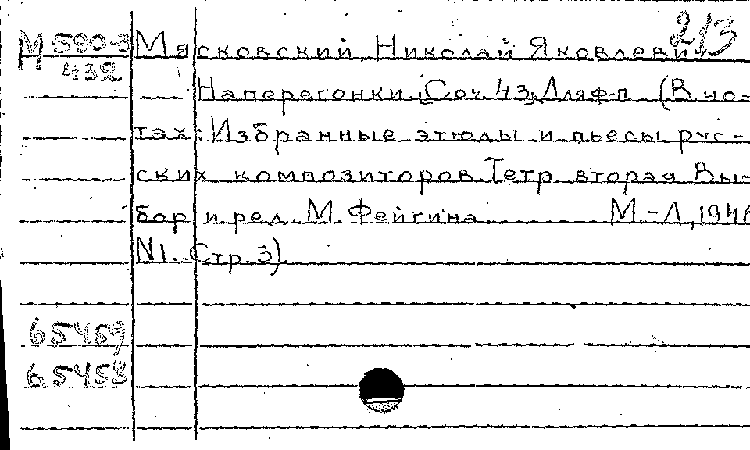 2/3
М 590-3 Мясковский Николай Яковлеви
432
Наперегонки, Соч. 43, Для ф-п (В но-
тах: Избранные этюды и пьесы рус-
ских композиторов. Тетр. вторая. Вы-
бор и ред. М. Фейгина М-Л, 1946
N1. Стр. 3)
65459
65453